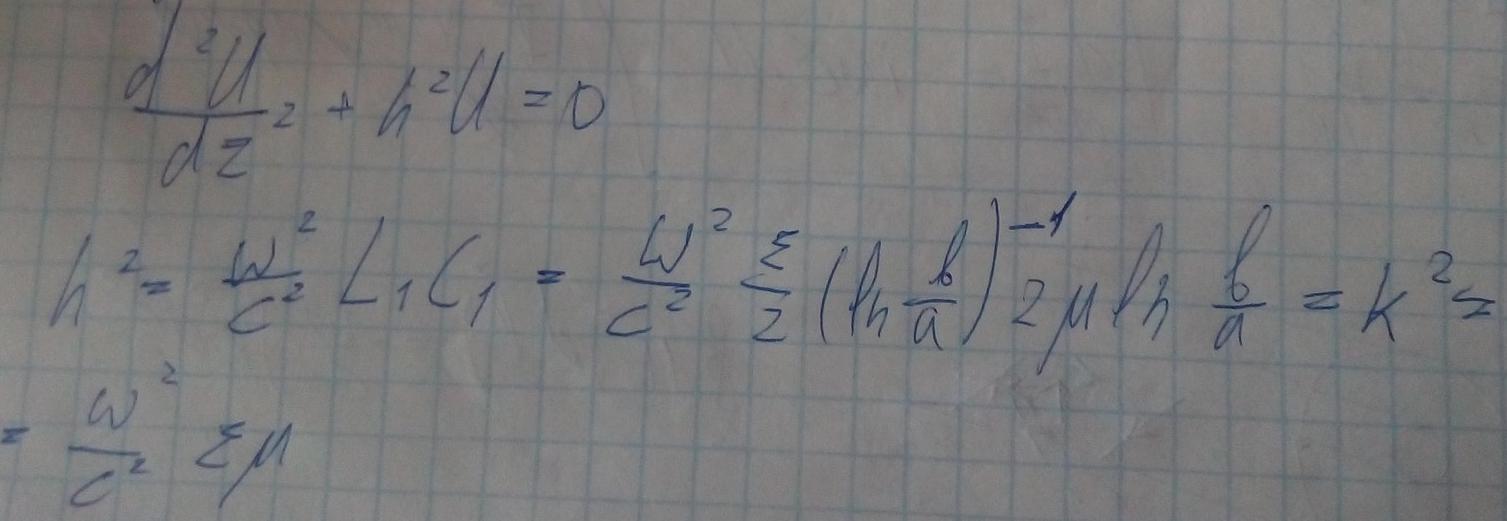 d²U/dz² + h²U = 0
h² = ω²/c² L₁C₁ = ω²/c² ε/2 (ln b/a)⁻¹ 2μ ln b/a = k² =
= ω²/c² εμ